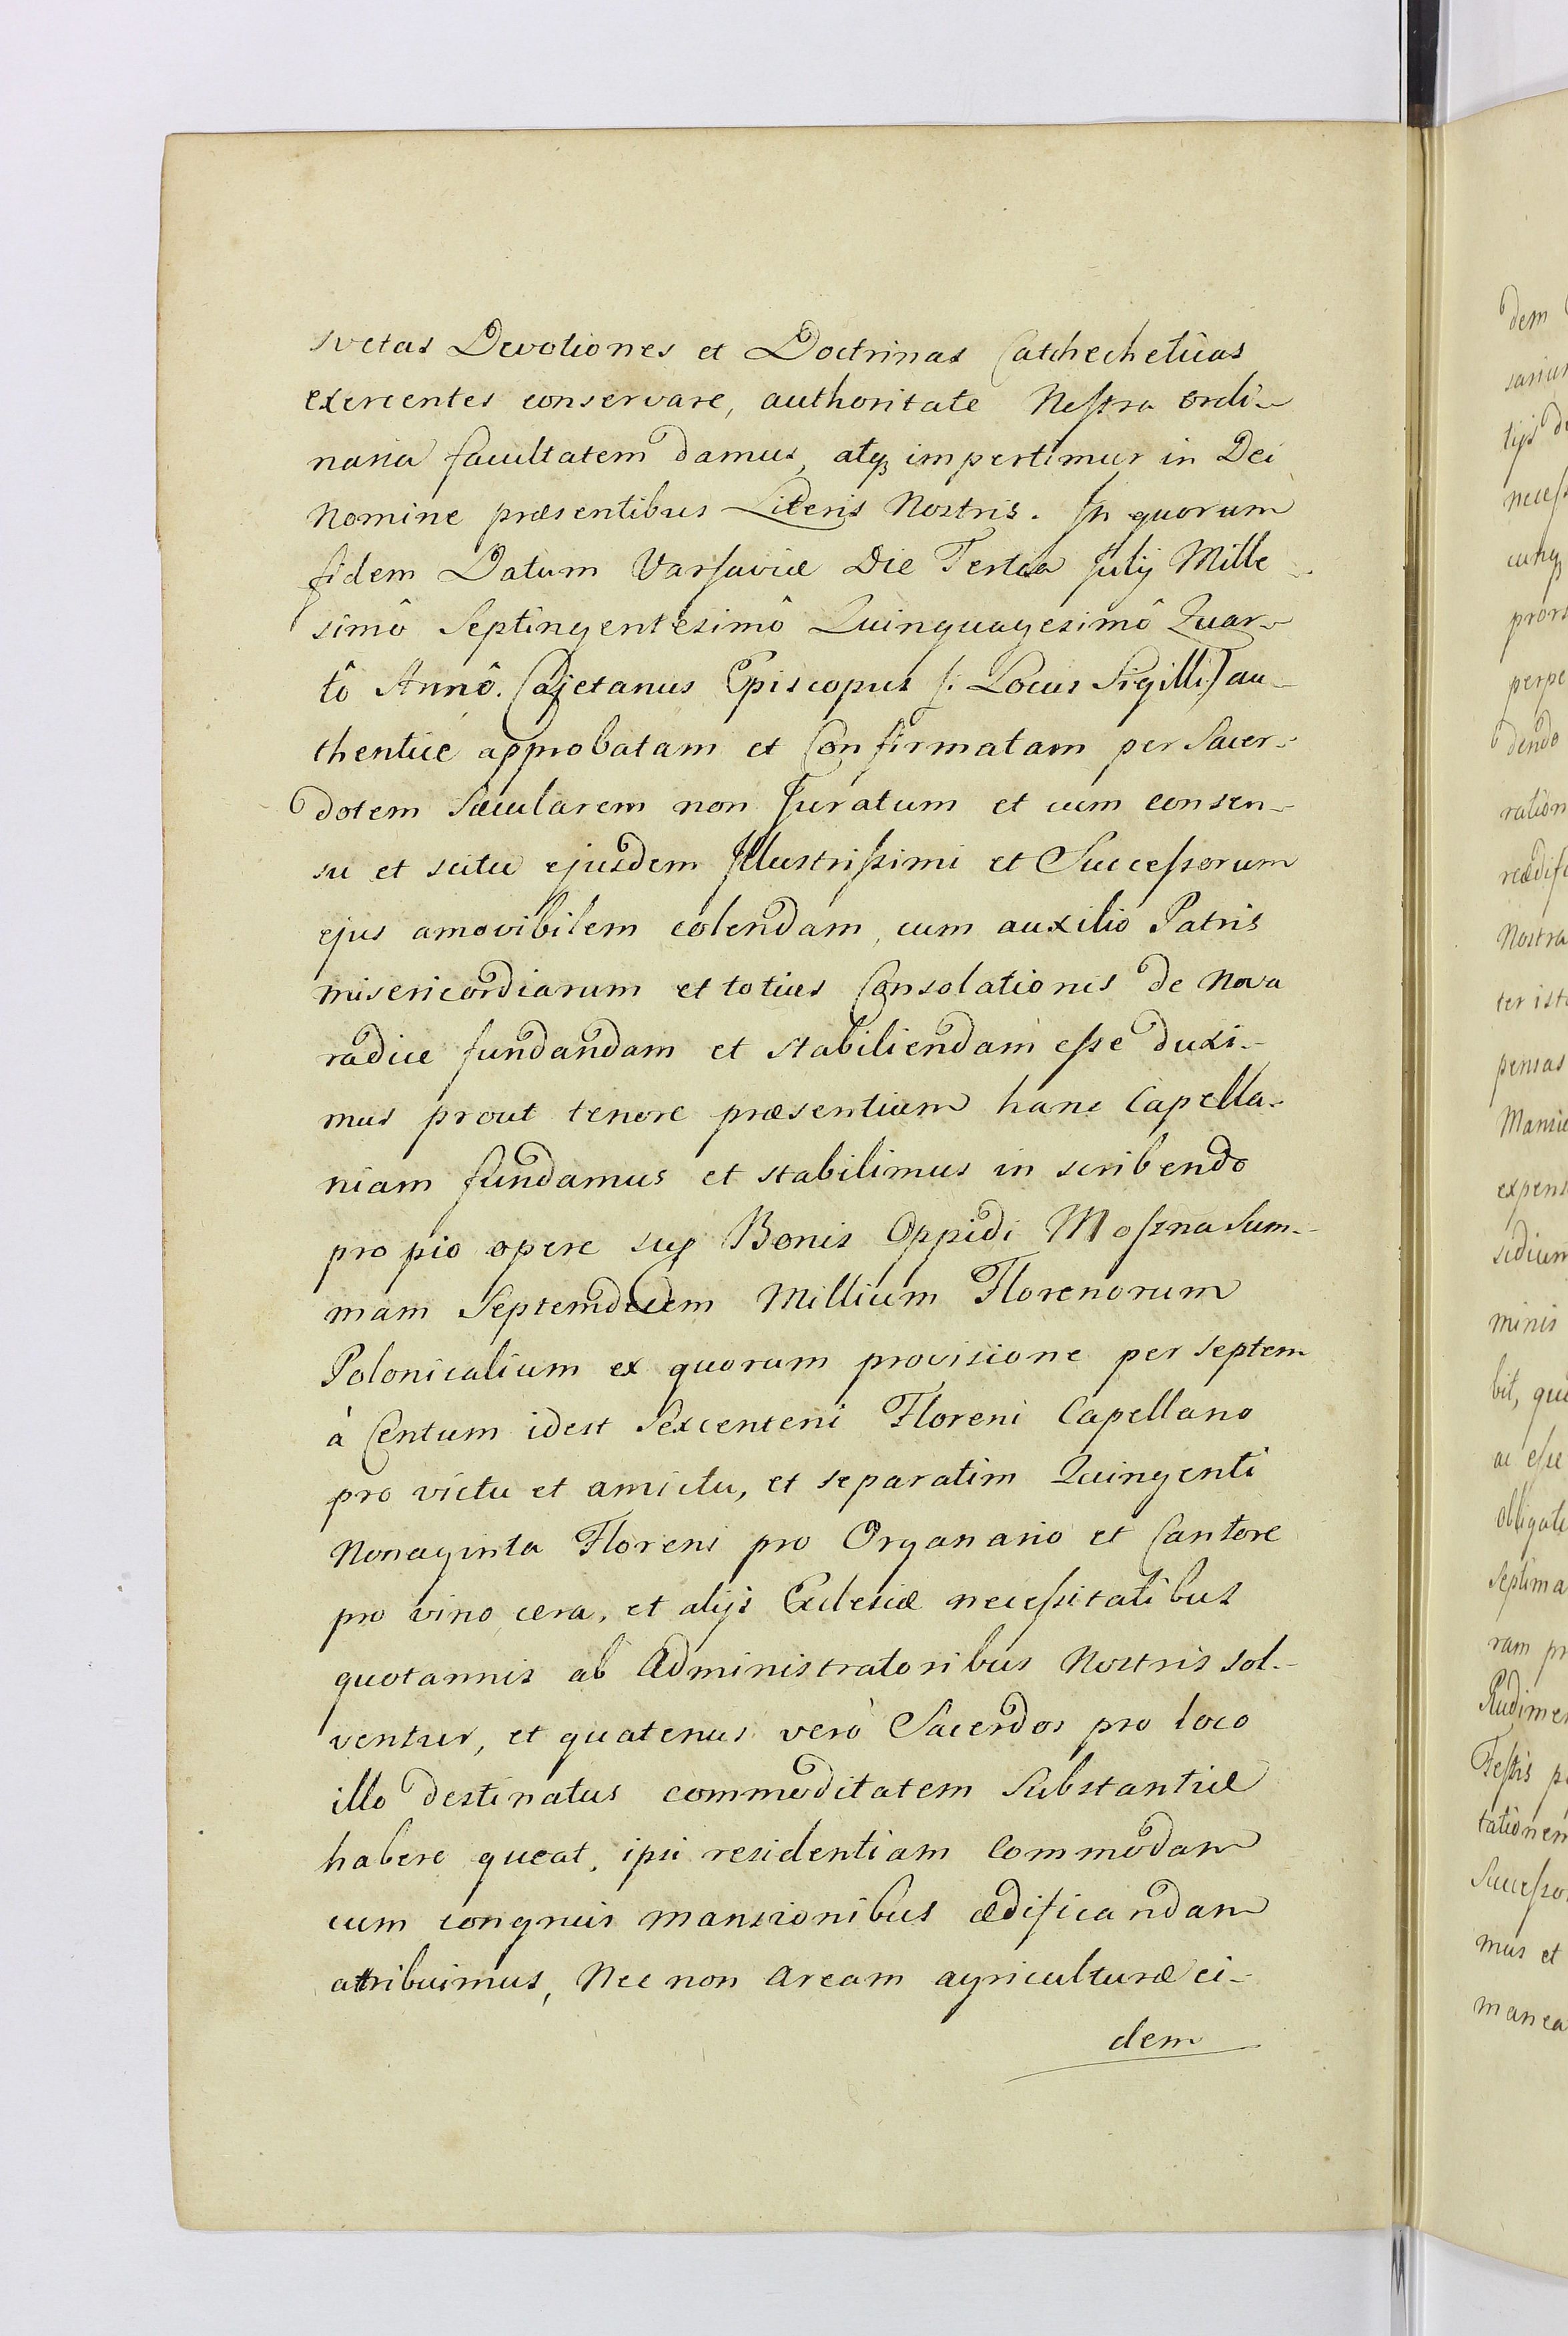 svetas Devotiones et Doctrinas Catchecheticas
exercentes conservare, authoritate Nostra ordi-
naria facultatem damus, atq3 impertimur in Dei
Nomine præsentibus Literis Nostris. In quorum
fidem Datum Varsaviæ Die Tertia Julij Mille-
simô Septingentesimô Quinquagesimô Quar-
tô Annô. Cajetanus Episcopus (: Locus Sigilli :) au-
thentice approbatam et Confirmatam per Sacer-
dotem Sæcularem non Juratum et cum consen-
su et scitu ejusdem Illustrissimi et Successorum
ejus amovibilem colendam, cum auxilio Patris
misericordiarum et totius Consolationis de Nova
radice fundandam et stabiliendam esse duxi-
mus prout tenore præsentium hanc Capella-
niam fundamus et stabilimus in scribendo
pro pio opere sup Bonis Oppidi Moszna Sum-
mam Septemdecem Millium Florenorum
Polonicalium ex quorum provisione per septem
à Centum idest Sexcenteni Floreni Capellano
pro victu et amictu, et separatim Quingenti
Nonaginta Floreni pro Organario et Cantore
pro vino cera, et alijs Ecclesiæ necessitatibus
quotannis ab Administratoribus Nostris sol-
ventur, et quatenus verò Sacerdos pro loco
illo destinatus commoditatem Substantiæ
habere queat, ipsi residentiam Commodam
cum congruis mansionibus ædificandam
attribuimus, Nec non Aream agriculturæ ei-
dem
dem
tijs
prors
perpe
dendo
ration
reædifi
Nostra
ter ist
pensas
Mansi
expens
sidium
minis
bit, qu
ac esse
obligat
Septima
ram pr
Rudimen
Festis p
tationem
Successo
mus et
manea